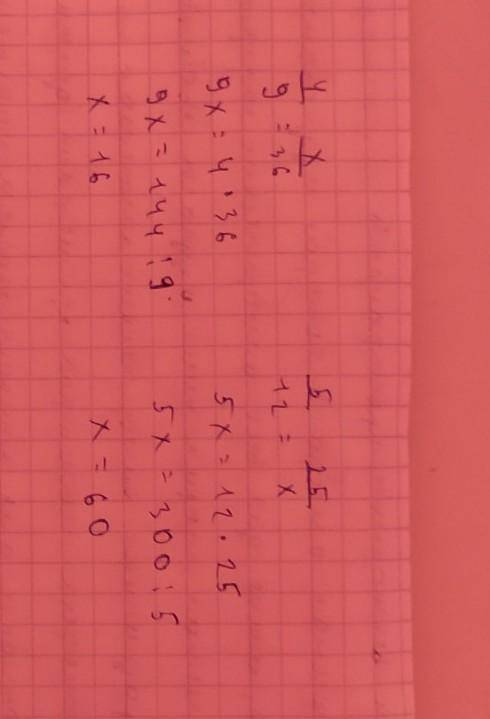 4/9 = x/36
9x = 4 · 36
9x = 144 : 9
x = 16
5/12 = 25/x
5x = 12 · 25
5x = 300 : 5
x = 60